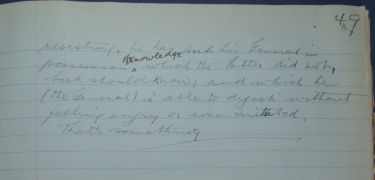 49
resisting, he has put his General in
possession of knowledge which the latter did not,
but should know; and which he
(the General) is able to digest without
feeling angry or even irritated.
That's something